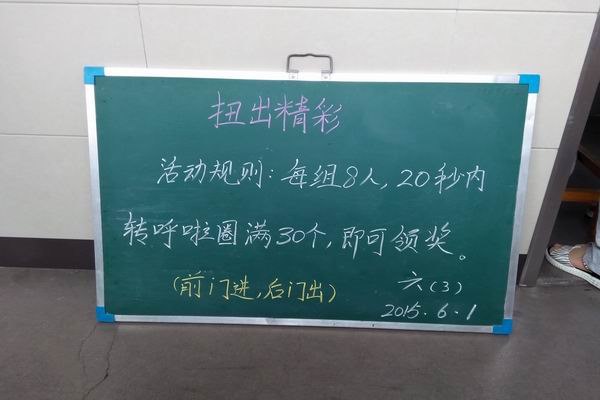 扭出精彩
活动规则:每组8人,20秒内
转呼啦圈满30个,即可领奖。
(前门进,后门出)
六(3)
2015.6.1